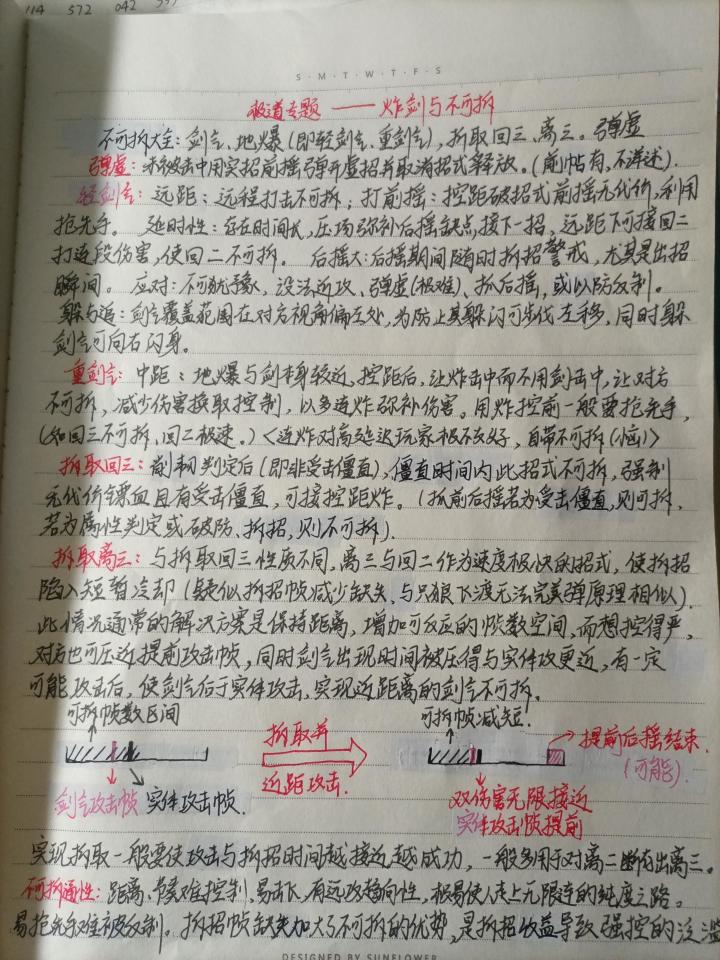 114 572 042
S·M·T·W·T·F·S
极道专题——炸剑与不可拆
不可拆大全：剑气、地爆（即轻剑气、重剑气），拆取回三、离三。弹虚
弹虚：未被击中用实招前摇弹开虚招并取消招式释放。（前帖有，不详述）.
轻剑气：远距：远程打击不可拆；打前摇：控距破招式前摇无代价，利用
抢先手。 延时性：存在时间长，压场弥补后摇缺点，接下一招，远距下可接回二
打连段伤害，使回二不可拆。 后摇大：后摇期间随时拆招警戒，尤其是出招
瞬间。 应对：不可犹豫，设法近攻、弹虚（极难）、抓后摇，或以防反制。
躲与追：剑气覆盖范围在对方视角偏左处，为防止其躲闪可步伐左移，同时躲
剑气可向右闪身。
重剑气：中距：地爆与剑本身较近，控距后，让炸击中而不用剑击中，让对方
不可拆，减少伤害换取控制，以多连炸弥补伤害。用炸控前一般要抢先手，
（如回三不可拆，回二极速。）〈连炸对高延迟玩家极不友好，自带不可拆（恼）〉
拆取回三：削韧判定后（即非受击僵直），僵直时间内此招式不可拆，强制
无代价镖血且有受击僵直，可接控距炸。（抓前后摇若为受击僵直，则可拆，
若为属性判定或破防、拆招，则不可拆）.
拆取离三：与拆取回三性质不同，离三与回二作为速度极快的招式，使拆招
陷入短暂冷却（疑似拆招帧减少缺失，与只狼飞渡无法完美弹原理相似）.
此情况通常的解决方案是保持距离，增加可反应的帧数空间，而想控得严，
对方也可压近提前攻击帧，同时剑气出现时间被压得与实体攻更近，有一定
可能攻击后，使剑气后于实体攻击，实现近距离的剑气不可拆。
可拆帧数区间 可拆帧减短.
拆取并 提前后摇结束.
近距攻击. （可能）.
剑气攻击帧 实体攻击帧. 双伤害无限接近
实体攻击帧提前
实现拆取一般要使攻击与拆招时间越接近越成功，一般多用于对离二断右出离三。
不可拆通性：距离、节奏难控制，易击飞，有远攻趋向性，极易使人走上无限连的纯度之路。
易抢先手难被反制。拆招帧缺失加大了不可拆的优势，是拆招收益导致强控的泛滥
DESIGNED BY SUNFLOWER